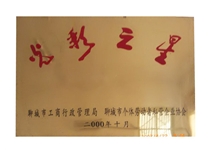 光彩之星
聊城市工商行政管理局 聊城市个体劳动者私营企业协会
二000年十月